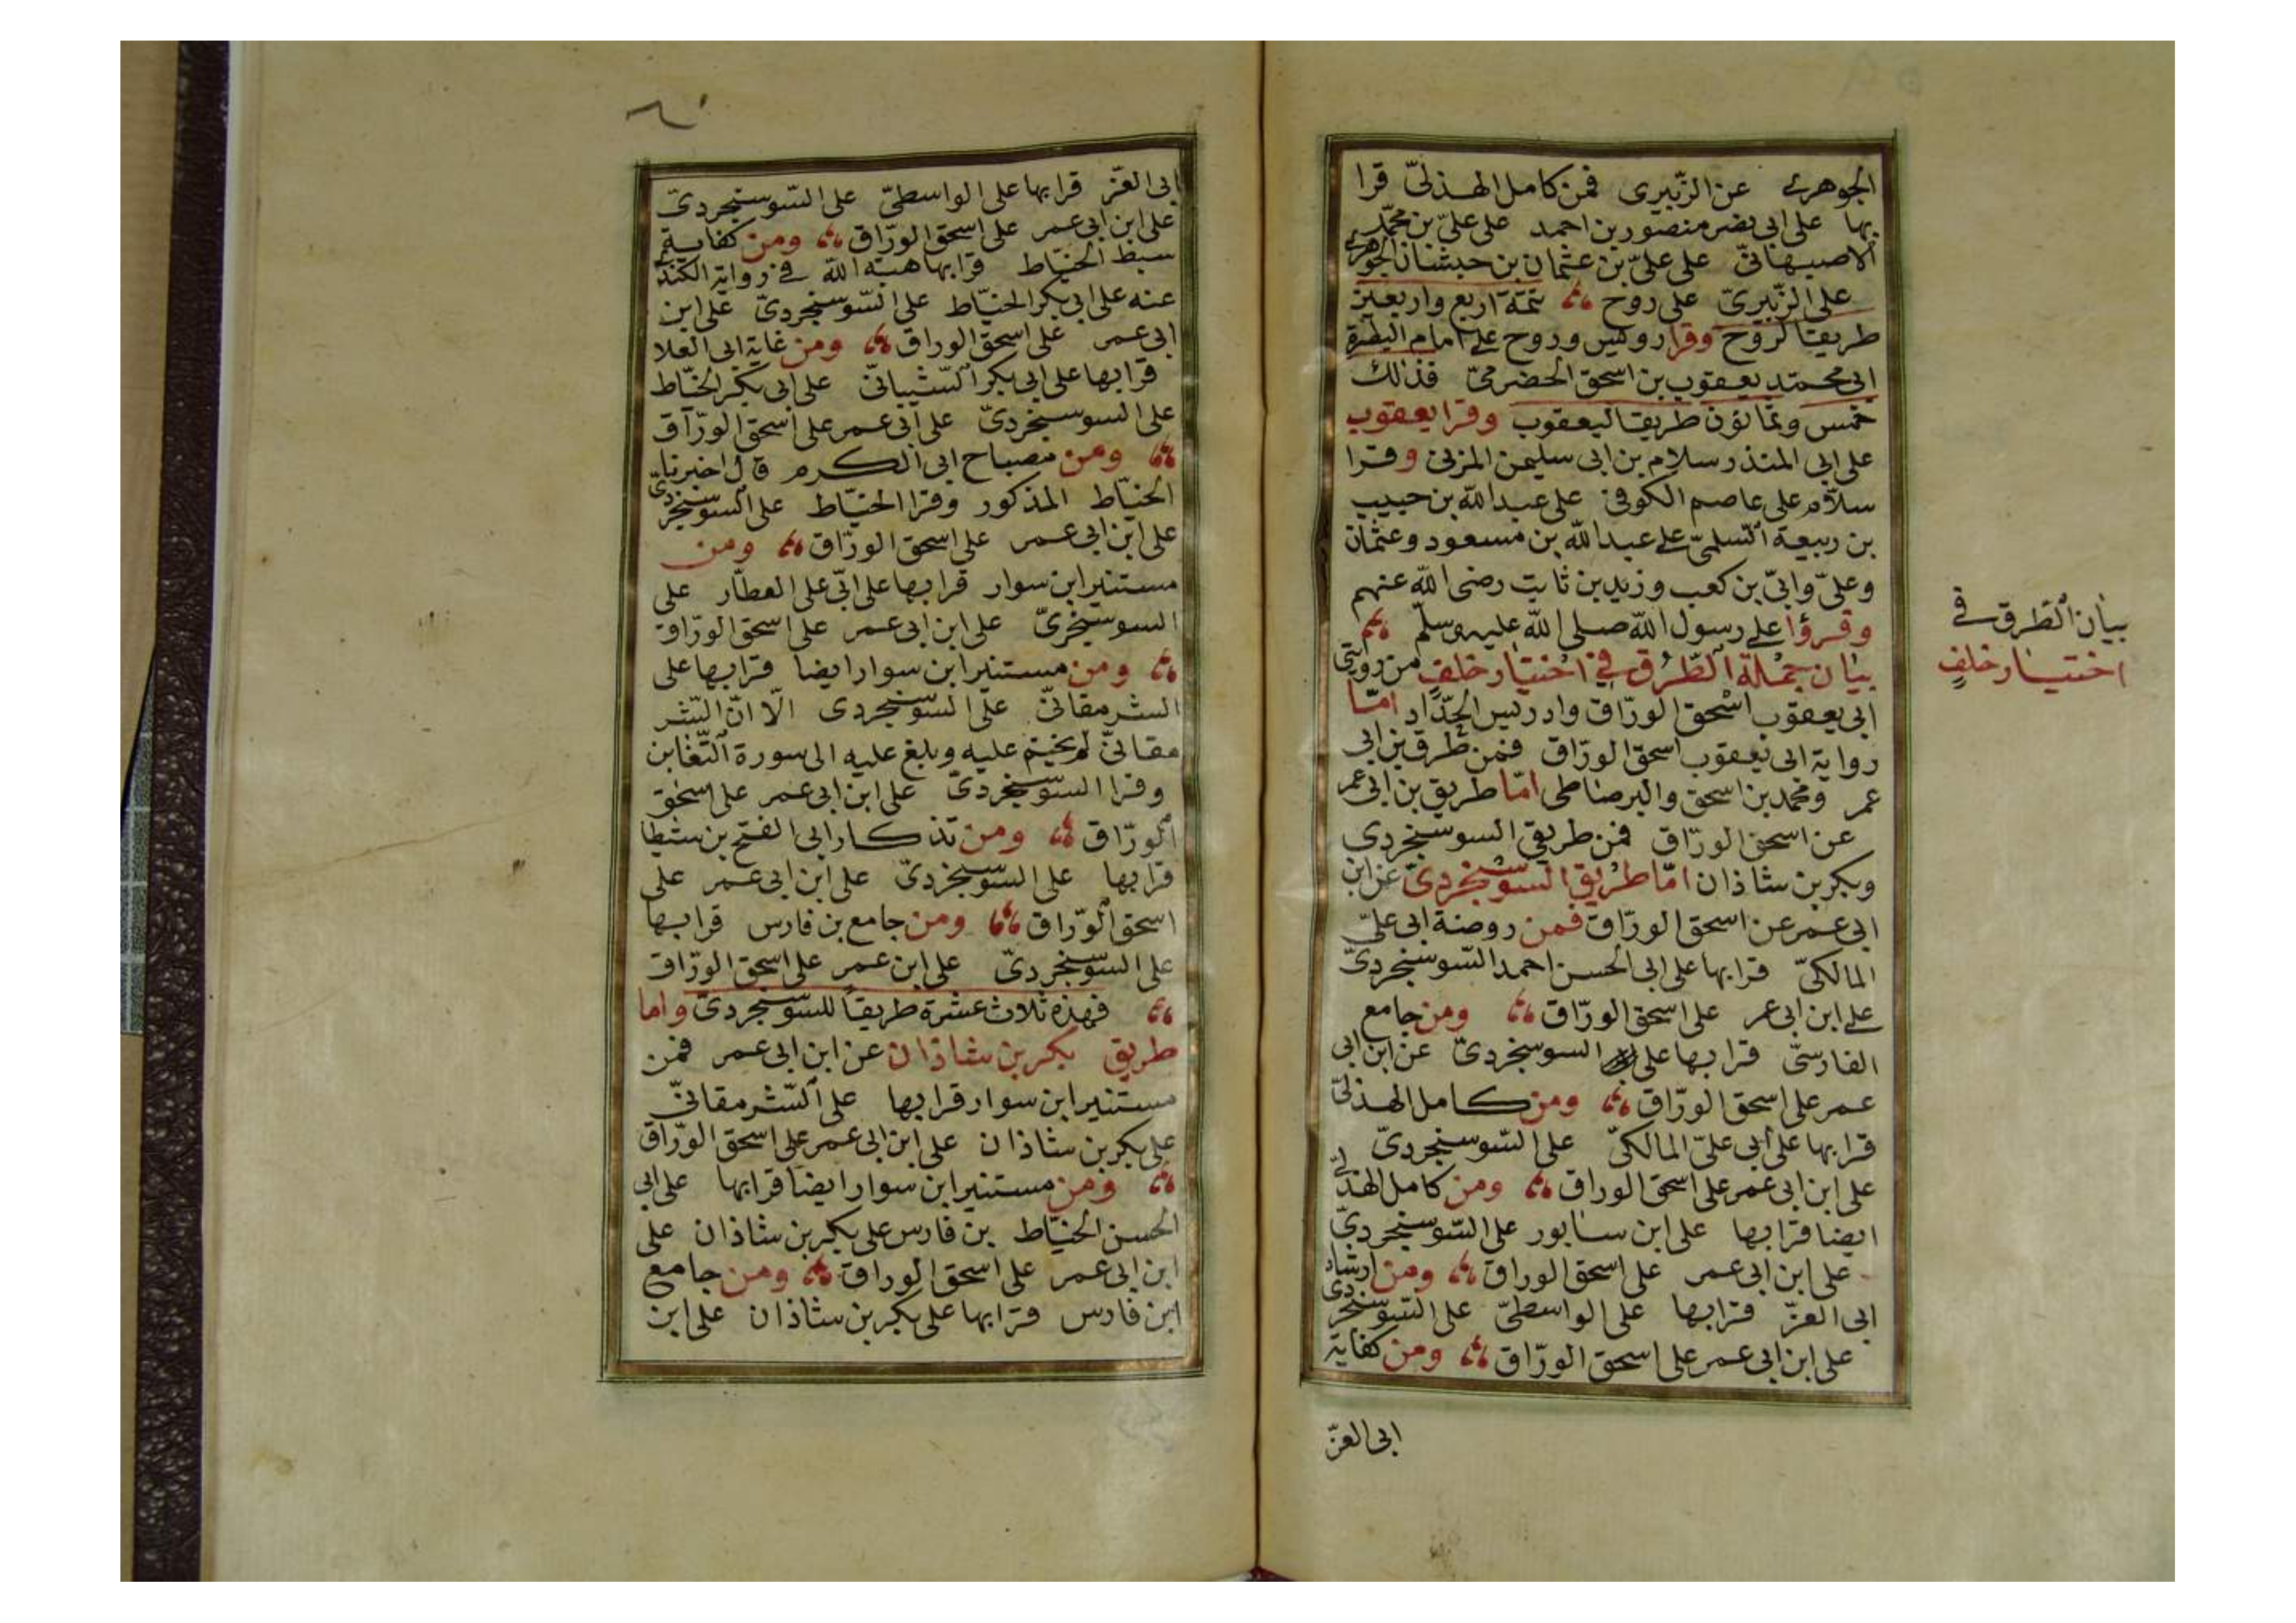 الجوهرى عن الزّبيرى فمن كامل الهذلىّ قرا
بها على ابى نصر منصور بن احمد على علىّ بن محمّد
الاصبهانىّ على علىّ بن عثمان بن حبشان الجوهرى
على الزّبيرىّ على روح تتمّة اربع واربعين
طريقا لروح وقرا رويس وروح على امام البصرة
ابى محمّد يعقوب بن اسحق الحضرمىّ فذلك
خمس وثمانون طريقا ليعقوب وقرا يعقوب
على ابى المنذر سلام بن ابى سليمن المزنى وقرا
سلاّم على عاصم الكوفى على عبد الله بن حبيب
بن ربيعة السّلمىّ على عبد الله بن مسعود وعثمان
وعلىّ وابىّ بن كعب وزيد بن ثابت رضى الله عنهم
وقرؤا على رسول الله صلى الله عليه وسلّم
بيان جملة الطّرق فى اختيار خلف من روايتى
ابى يعقوب اسحق الورّاق وادريس الحدّاد امّا
رواية ابى يعقوب اسحق الورّاق فمن طرق بن ابى
عمر ومحمد بن اسحق والبرصاطى امّا طريق بن ابى عمر
عن اسحق الورّاق فمن طريقى السوسنجردى
وبكر بن شاذان امّا طريق السّوسنجردىّ عن ابن
ابى عمر عن اسحق الورّاق فمن روضة ابى علىّ
المالكىّ قرا بها على ابى الحسن احمد السّوسنجردىّ
على ابن ابى عمر على اسحق الورّاق ومن جامع
الفارسىّ قرا بها على السوسنجردىّ عن ابن ابى
عمر على اسحق الورّاق ومن كامل الهذلىّ
قرا بها على ابى علىّ المالكىّ على السّوسنجردىّ
على ابن ابى عمر على اسحق الوراق ومن كامل الهذلىّ
ايضا قرا بها على ابن سابور على السّوسنجردىّ
على ابن ابى عمر على اسحق الوراق ومن ارشاد
ابى العزّ قرا بها على الواسطىّ على السّوسنجردى
على ابن ابى عمر على اسحق الورّاق ومن كفاية
ابى العزّ
بيان الطّرق فى
اختيار خلف
ابى العزّ قرا بها على الواسطىّ على السّوسنجردىّ
على ابن ابى عمر على اسحق الورّاق ومن كفاية
سبط الخيّاط قرا بها هبة الله فى رواية الكندىّ
عنه على ابى بكر الخيّاط على السّوسنجردىّ على ابن
ابى عمر على اسحق الوراق ومن غاية ابى العلا
قرا بها على ابى بكر الشّيبانىّ على ابى بكر الخيّاط
على السوسنجردىّ على ابى عمر على اسحق الورّاق
ومن مصباح ابى الكرم قال اخبرنا
الخيّاط المذكور وقرا الخيّاط على السّوسنجردىّ
على ابن ابى عمر على اسحق الورّاق ومن
مستنير ابن سوار قرا بها على ابى على العطّار على
السوسنجرىّ على ابن ابى عمر على اسحق الورّاق
ومن مستنير ابن سوار ايضا قرا بها على
الشرمقانىّ على السّوسنجردى الّا انّ الشّر
مقانىّ لم يختم عليه وبلغ عليه الى سورة التّغابن
وقرا السّوسنجردىّ على ابن ابى عمر على اسحق
الورّاق ومن تذكار ابى الفتح بن شيطا
قرا بها على السّوسنجردىّ على ابن ابى عمر على
اسحق الورّاق ومن جامع بن فارس قرا بها
على السّوسنجردىّ على ابن عمر على اسحق الورّاق
فهذه ثلاث عشرة طريقًا للسّوسنجردىّ واما
طريق بكر بن شاذان عن ابن ابى عمر فمن
مستنير ابن سوار قرا بها على الشّرمقانىّ
على بكر بن شاذان على ابن ابى عمر على اسحق الورّاق
ومن مستنير ابن سوار ايضا قرا بها على ابى
الحسن الخيّاط بن فارس على بكر بن شاذان على
ابن ابى عمر على اسحق الوراق ومن جامع
ابن فارس قرا بها على بكر بن شاذان على ابن